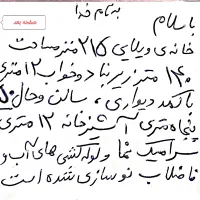 به نام خدا
صفحه بعد
با سلام
خانه ی ویلایی ۲۱۵ متر مساحت
۱۴۰ متر زیربنا دو خواب ۱۲ متری
با کمد دیواری ، سالن و حال
پنجاه متری آشپزخانه ۱۲ متری
سرامیک نما و لوله کشی های آب و
فاضلاب نوسازی شده است